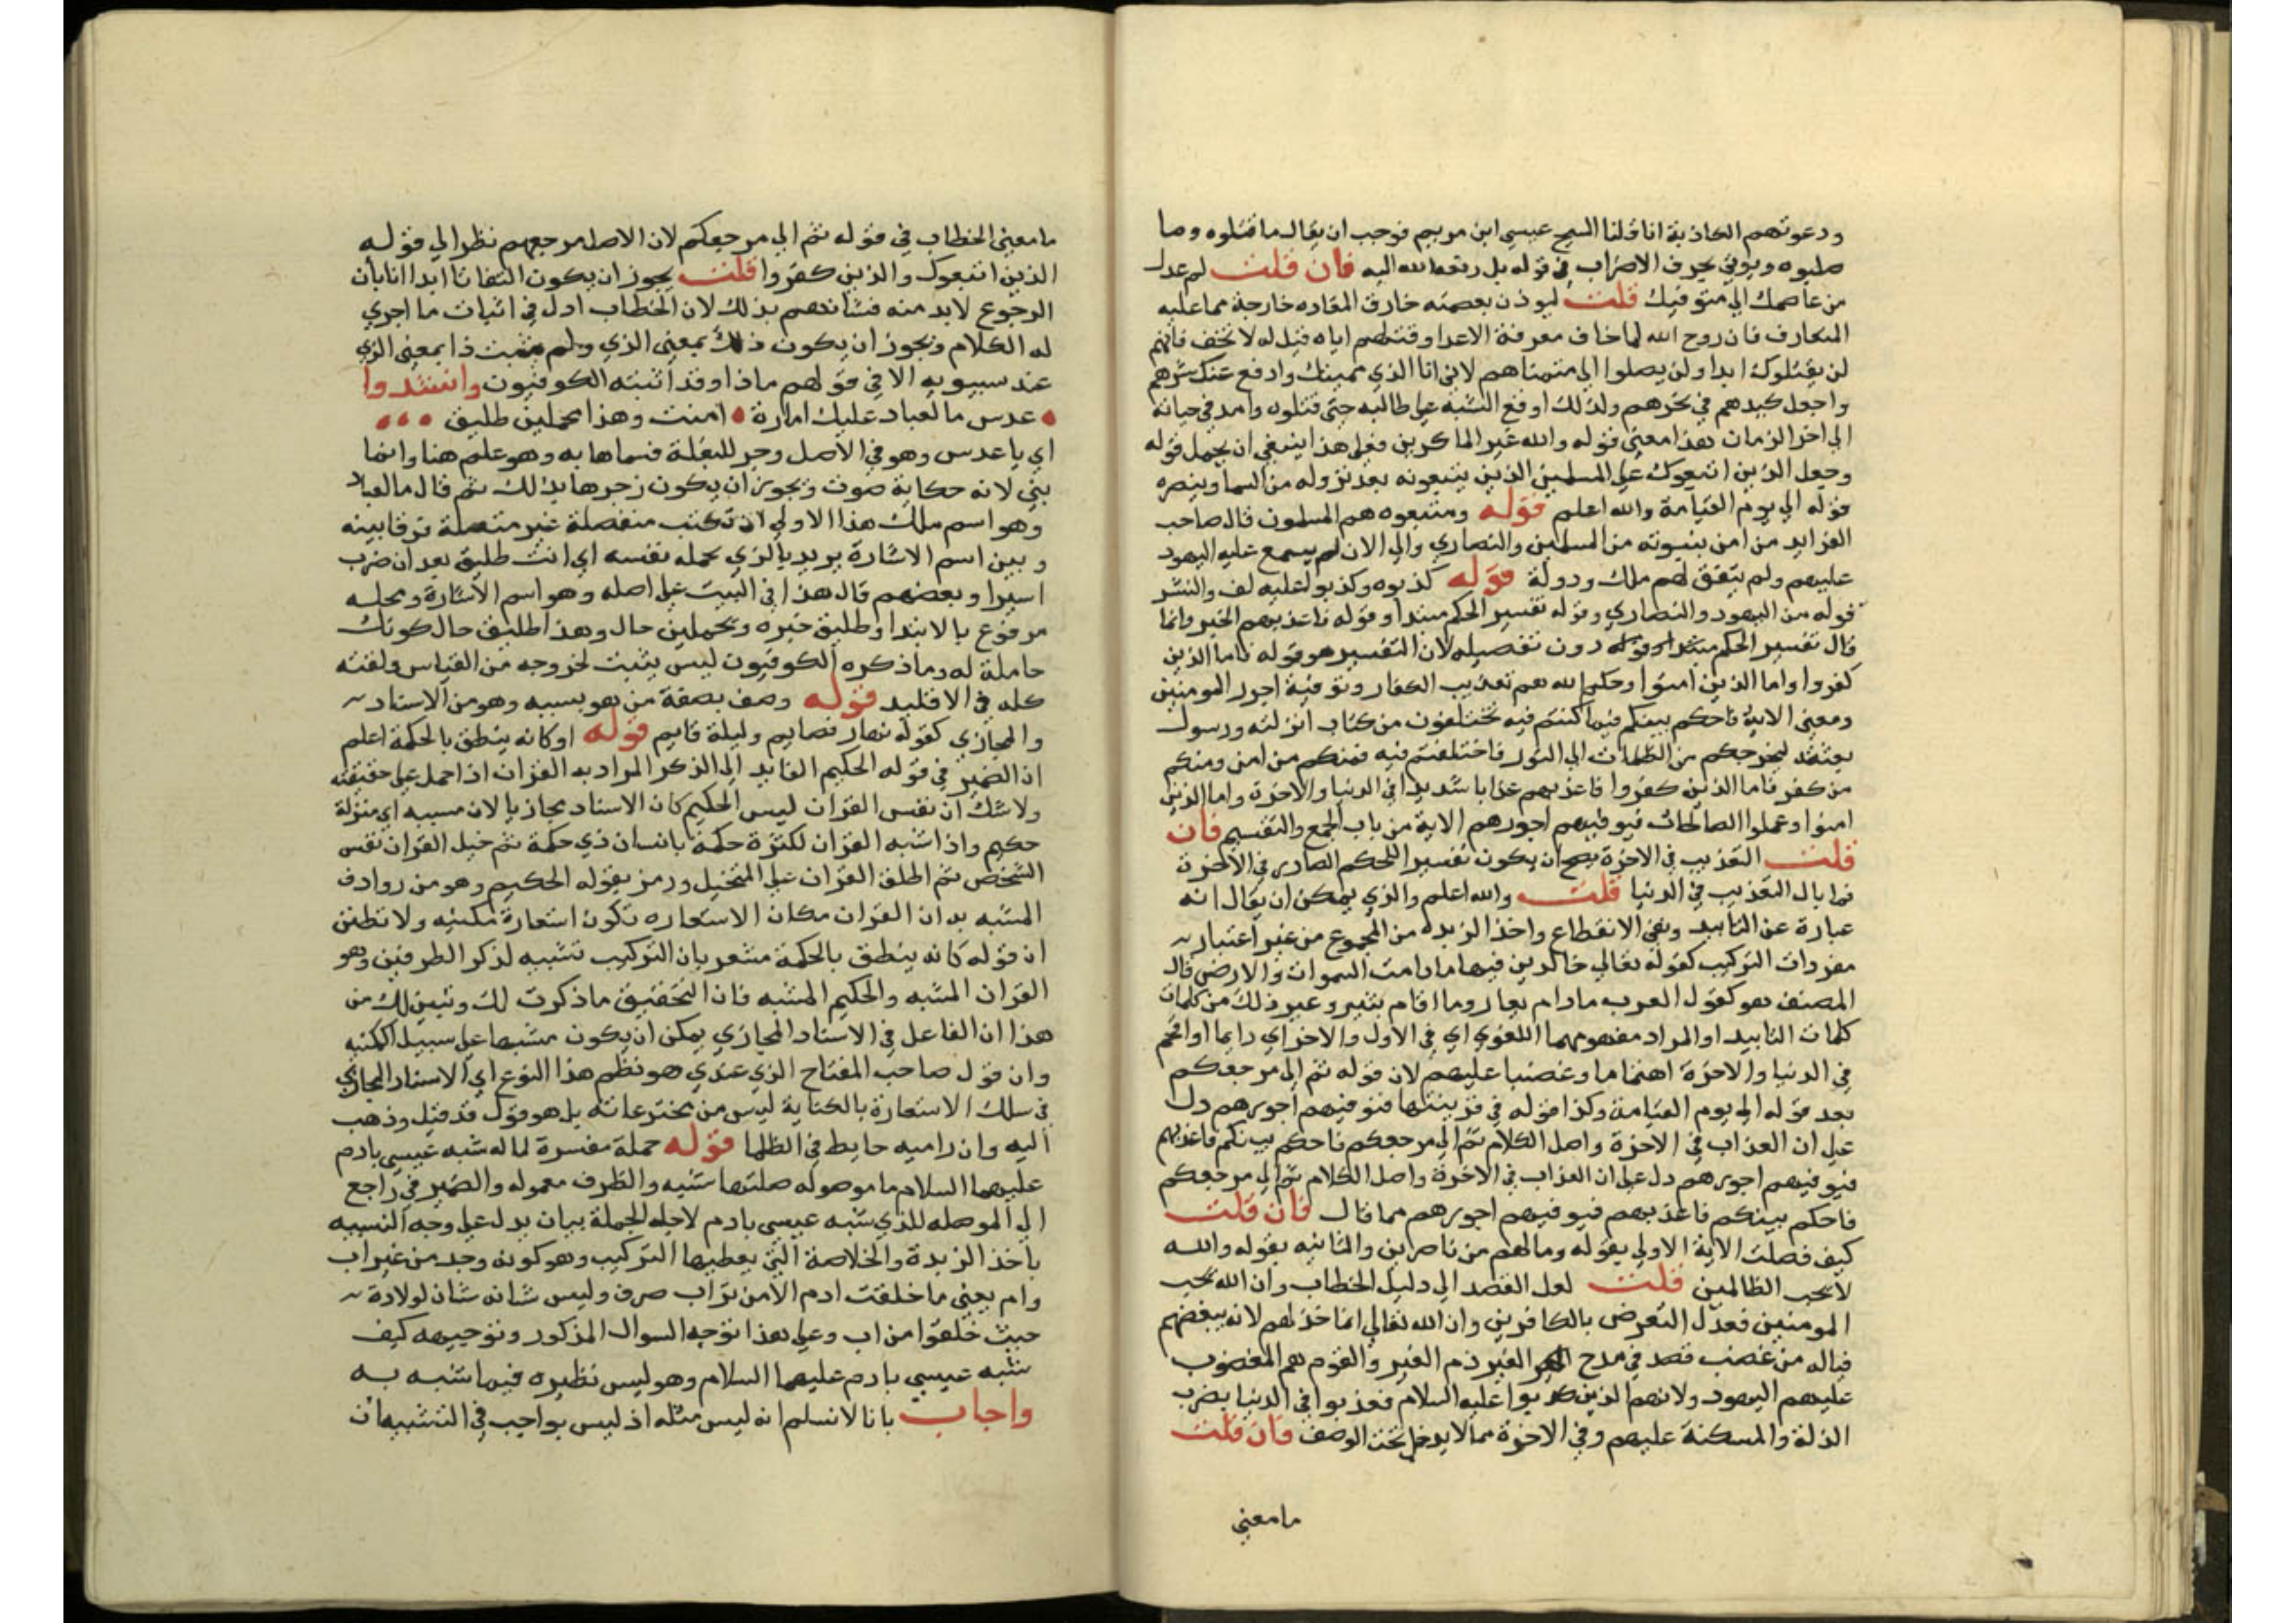 ودعوتهم الكاذبة انا قتلنا المسيح عيسى ابن مريم فوجب ان يقال ما قتلوه وما
صلبوه ويوتي بحرف الاضراب في قوله بل رفعه الله اليه فان قلت لم عدل
من عاصمك الي متوفيك قلت ليوذن بعصمه خارق العاده خارجة مما عليه
المتعارف فان روح الله لما خاف معرفة الاعدا وقتلهم اياه قيل له لا تخف فانهم
لن يقتلوك ابدا ولن يصلوا الي متمناهم لاني انا الذي مميتك وادفع عنك شرهم
واجعل كيدهم في نحرهم ولذلك اوقع الشبه علي طالبه حتي قتلوه وامد في حياته
الي اخر الزمان هذا معني قوله والله خير الماكرين فعلي هذا ينبغي ان يحمل قوله
وجعل الذين اتبعوك علي المسلمين الذين يتبعونه بعد نزوله من السما وينصره
قوله الي يوم القيامة والله اعلم قوله ومتبعوه هم المسلمون قال صاحب
الفرايد من امن بنبوته من المسلمين والنصاري والي الان لم يسمع غلبه اليهود
عليهم ولم يتفق لهم ملك ودولة قوله كذبوه وكذبوا عليه لف والنشر
قوله من اليهود والنصاري وقوله تفسير الحكم مبتدا وقوله فاعذبهم الخبر وانما
قال تفسير الحكم دون تفصيله لان التفسير هو قوله فاما الذين
كفروا واما الذين امنوا وحكم الله هم تعذيب الكفار وتوفية اجور المومنين
ومعني الاية فاحكم بينكم فيما كنتم فيه تختلفون من كتاب انزلته ورسول
بعثته ليخرجكم من الظلمات الي النور فاختلفتم فيه فمنكم من امن ومنكم
من كفر فاما الذين كفروا فاعذبهم عذابا شديدا في الدنيا والاخرة واما الذين
امنوا وعملوا الصالحات فيوفيهم اجورهم الاية من باب الجمع والتقسيم فان
قلت التعذيب في الاخرة يصح ان يكون تفسيرا للحكم الصادر في الاخرة
فما بال التعذيب في الدنيا قلت والله اعلم والذي يمكن ان يقال انه
عبارة عن التابيد ونفي الانقطاع واخذ الزبده من المجموع من غير اعتبار
مفردات التركيب كقوله تعالي خالدين فيها ما دامت السموات والارض قال
المصنف هو كقول العرب ما دام تعار وما اقام ثبير وغير ذلك من كلمات
كلمات التابيد او المراد مفهومهما اللغوي اي في الاول والاخر اي دايما او اقحم
في الدنيا والاخرة اهتماما وغضبا عليهم لان قوله ثم الي مرجعكم
بعد قوله الي يوم القيامة وكذا قوله في قرينتها فنوفيهم اجورهم دل
علي ان العذاب في الاخرة واصل الكلام ثم الي مرجعكم فاحكم بينكم فاعذبهم
فيوفيهم اجورهم دل علي ان العذاب في الاخرة واصل الكلام ثم الي مرجعكم
فاحكم بينكم فاعذبهم فيوفيهم اجورهم مما قال فان قلت
كيف فصلت الاية الاولي بقوله وما لهم من ناصرين والثانيه بقوله والله
لا يحب الظالمين قلت لعل القصد الي دليل الخطاب وان الله يحب
المومنين فعدل التعرض بالكافرين وان الله تعالي انما خذلهم لانه يبغضهم
فياله من غضب قصد في مدح الغير ذم الغير والقوم هم المغضوب
عليهم اليهود ولانهم الذين كذبوا عليه السلام فعذبوا في الدنيا بضرب
الذلة والمسكنة عليهم وفي الاخرة مما لا يدخل تحت الوصف فان قلت
ما معني
ما معني الخطاب في قوله ثم الي مرجعكم لان الاصل مرجعهم نظرا الي قوله
الذين اتبعوك والذين كفروا قلت يجوز ان يكون التفاتا ابدا انا بان
الرجوع لا بد منه فشاندهم بذلك لان الخطاب ادل في اثبات ما اجري
له الكلام ويجوز ان يكون ذلك بمعني الذي ولم يثبت ذا بمعني الذي
عند سيبويه الا في قولهم ماذا وقد اثبته الكوفيون وانشدوا
عدس ما لعباد عليك امارة امنت وهذا تحملين طليق
اي يا عدس وهو في الاصل زجر للبغلة فسماها به وهو علم هنا وانما
بني لانه حكاية صوت ويجوز ان يكون زجرها بذلك ثم قال ما لعباد
وهو اسم ملك هذا الاولي ان تكتب منفصلة غير متصلة فرقا بينه
وبين اسم الاشارة يريد بالذي يحمله نفسه اي انت طليق بعد ان ضرب
اسيرا وبعضهم قال هذا في البيت علي اصله وهو اسم الاشارة ومحله
مرفوع بالابتدا وطليق خبره وتحملين حال وهذا طليق حال كونك
حاملة له وما ذكره الكوفيون ليس يثبت لخروجه من القياس ولغته
كله في الاقليد قوله وصف بصفة من هو بسببه وهو من الاسناد
والمجازي كقوله نهار صايم وليلة قايم قوله او كانه ينطق بالحكمة اعلم
ان الضمير في قوله الحكيم العايد الي الذكر المراد به القران اذا حمل علي حقيقته
ولا شك ان نفس القران ليس الحكيم كان الاسناد مجازيا لان مسببه اي منزله
حكيم واذا شبه القران لكثرة حكمة بانسان ذي حكمة ثم خيل القران نفس
الشخص ثم اطلق القران علي المتخيل ورمز بقوله الحكيم وهو من روادف
المشبه به ان القران مكان الاستعاره تكون استعارة مكنيه ولا تظنن
ان قوله كانه ينطق بالحكمة مشعر بان التركيب تشبيه لذكر الطرفين وهو
القران المشبه والحكيم المشبه فان التحقيق ما ذكرت لك وتبين لك من
هذا ان الفاعل في الاسناد المجازي يمكن ان يكون مشبها علي سبيل المكنيه
وان قول صاحب المفتاح الذي عندي هو نظم هذا النوع اي الاسناد المجازي
في سلك الاستعارة بالكناية ليس من مخترعاته بل هو قول قد قيل وذهب
اليه وان راميه حابط في الظلما قوله جملة مفسرة لما له شبه عيسي بادم
عليهما السلام ما موصوله صلتها شبه والظرف معموله والضمير في راجع
الي الموصله للذي شبه عيسي بادم لاجله الجملة بيان بدل علي وجه التشبيه
باخذ الزبدة والخلاصة التي يعطيها التركيب وهو كونه وجد من غير اب
وام يعني ما خلقت ادم الا من تراب صرف وليس شانه شان لولادة
حيث خلقوا من اب وعلي هذا توجه السوال المذكور وتوجيهه كيف
شبه عيسي بادم عليهما السلام وهو ليس نظيره فيما شبه به
واجاب بانا لا نسلم انه ليس مثله اذ ليس بواجب في التشبيه ان